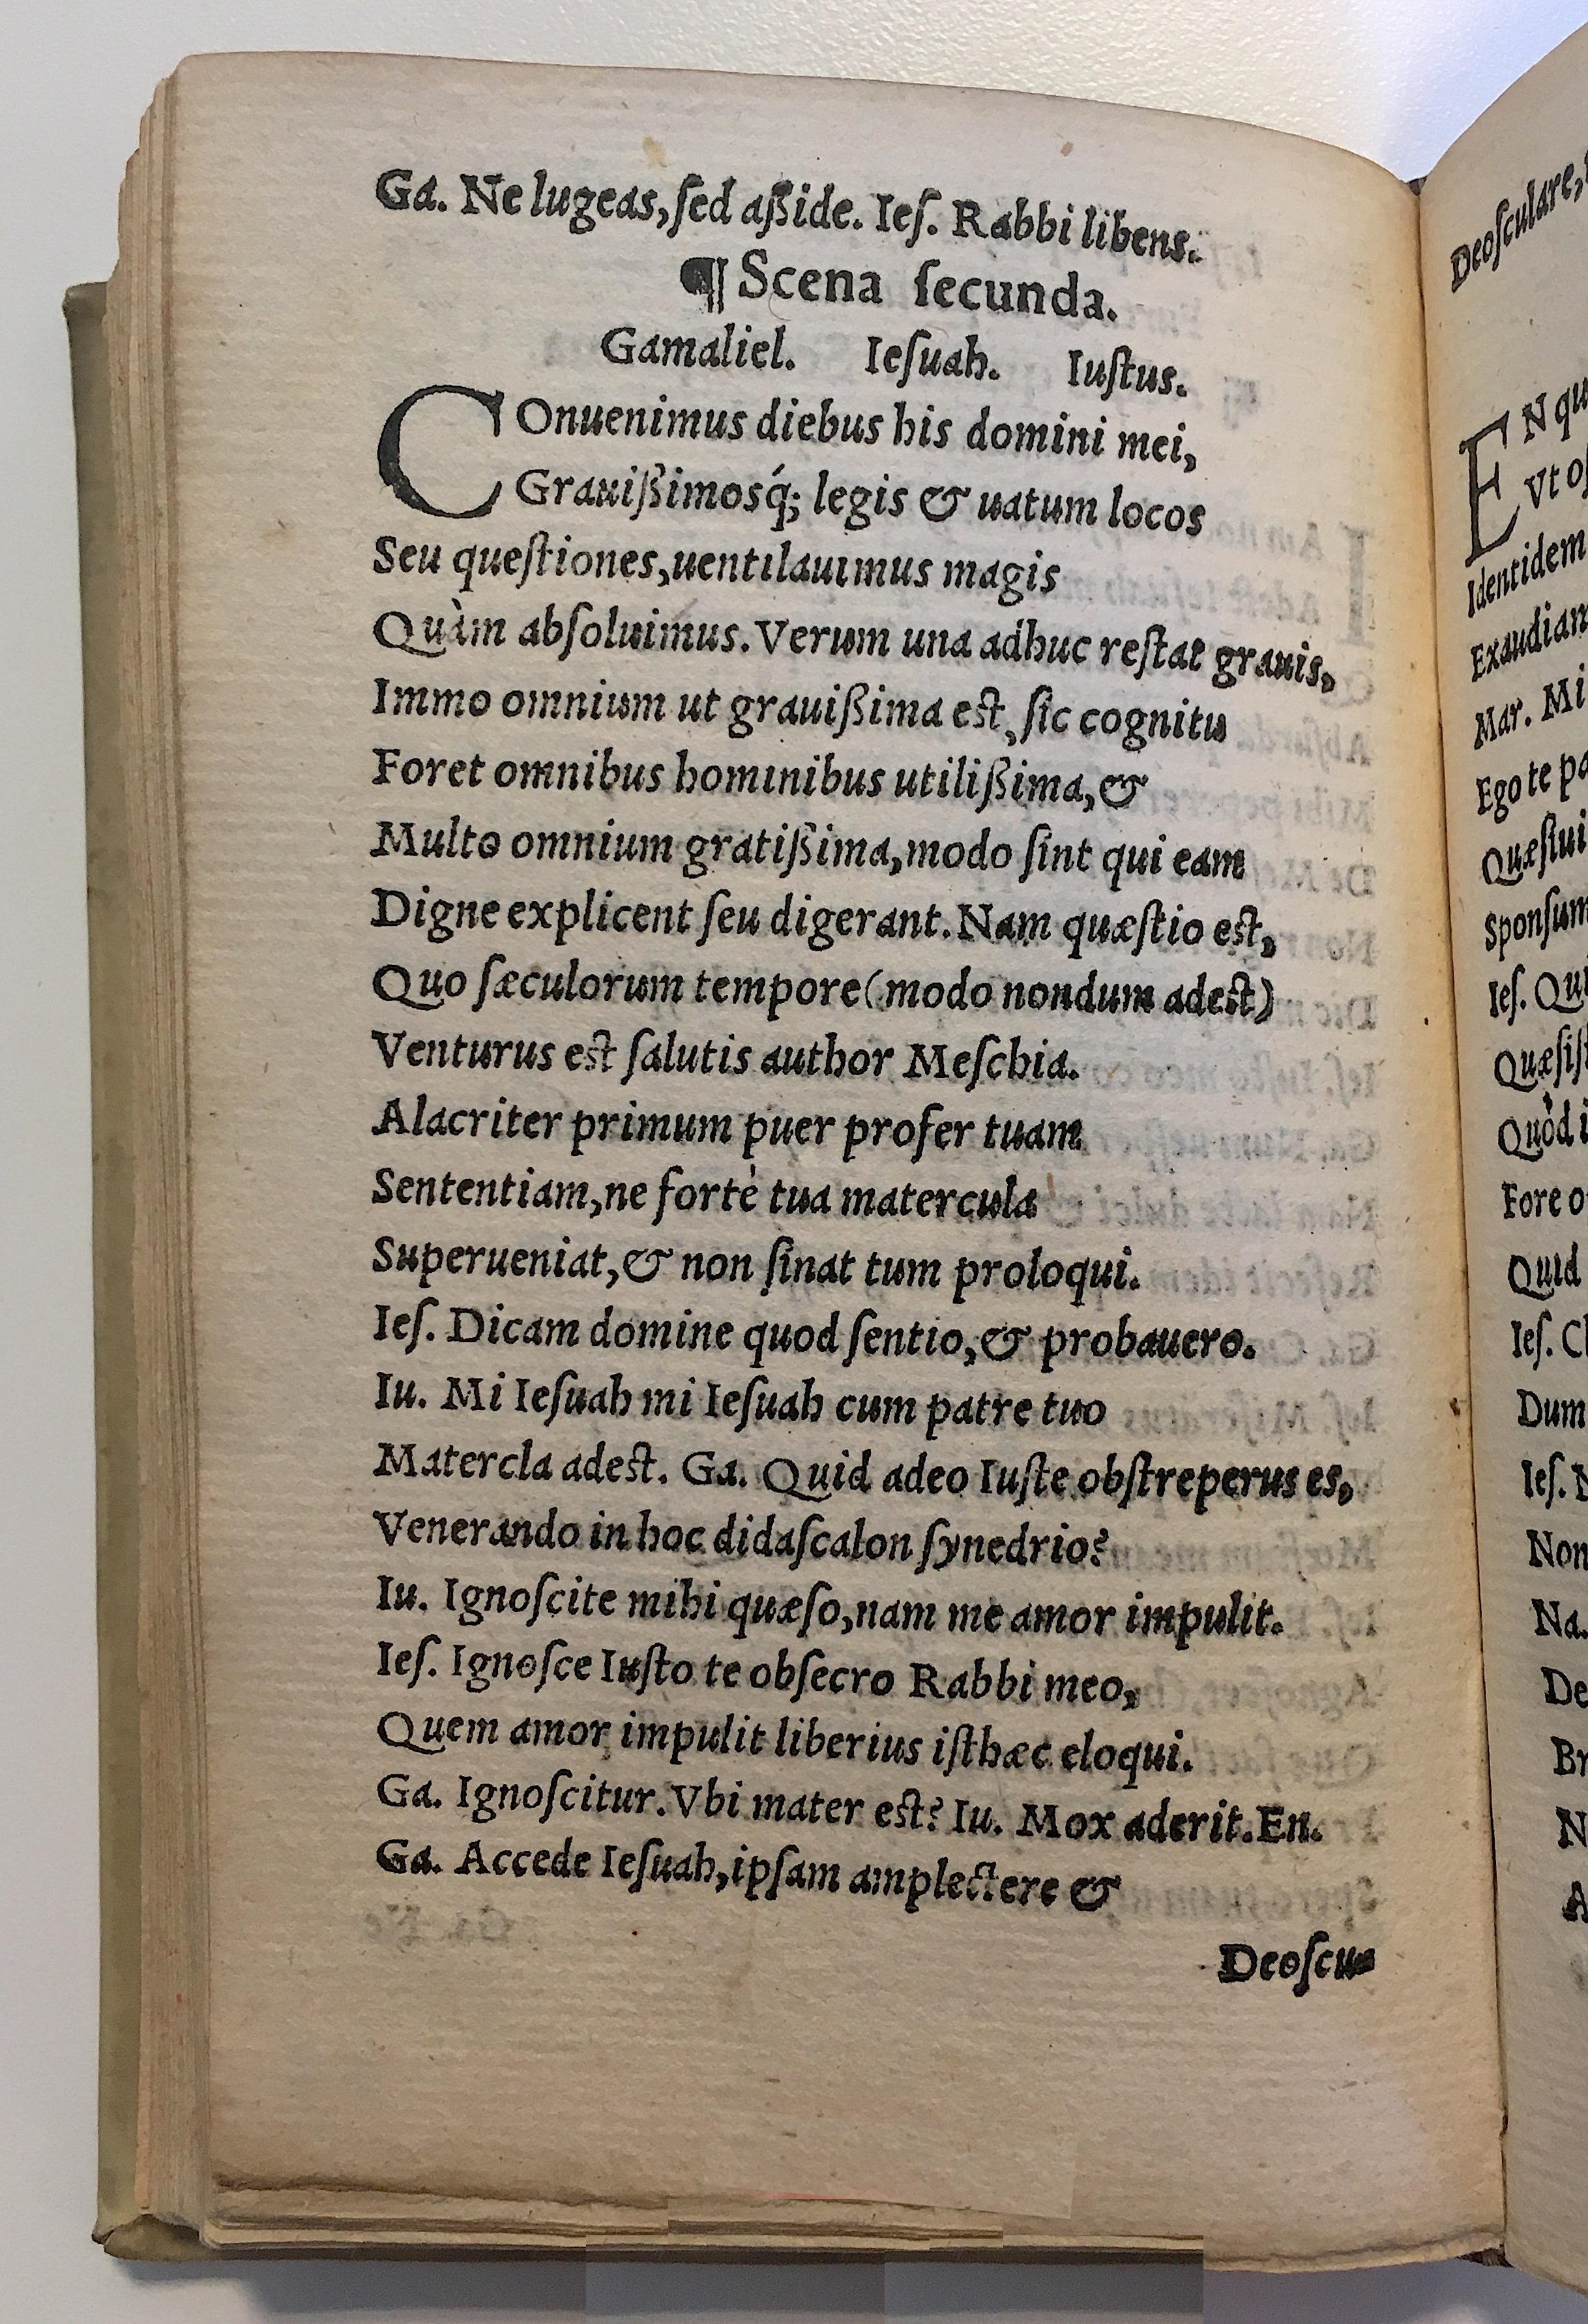 Ga. Ne lugeas, ſed aßide. Ieſ. Rabbi libens.
¶ Scena ſecunda.
Gamaliel. Ieſuah. Iuſtus.
COnuenimus diebus his domini mei,
Grauißimosq́; legis & uatum locos
Seu queſtiones, uentilauimus magis
Quàm abſoluimus. Verum una adhuc reſtat grauis,
Immo omnium ut grauißima eſt, ſic cognitu
Foret omnibus hominibus utilißima, &
Multo omnium gratißima, modo ſint qui eam
Digne explicent ſeu digerant. Nam quæſtio eſt,
Quo ſæculorum tempore (modo nondum adeſt)
Venturus eſt ſalutis author Meſchia.
Alacriter primum puer profer tuam
Sententiam, ne fortè tua matercula
Superueniat, & non ſinat tum proloqui.
Ieſ. Dicam domine quod ſentio, & probauero.
Iu. Mi Ieſuah mi Ieſuah cum patre tuo
Matercla adeſt. Ga. Quid adeo Iuſte obſtreperus es,
Venerando in hoc didaſcalon ſynedrio?
Iu. Ignoſcite mihi quæſo, nam me amor impulit.
Ieſ. Ignoſce Iuſto te obſecro Rabbi meo,
Quem amor impulit liberius iſthæc eloqui.
Ga. Ignoſcitur. Vbi mater eſt? Iu. Mox aderit. En.
Ga. Accede Ieſuah, ipſam amplectere &
Deoſcu-
Deoſculare,
EN qu
Vt
Identidem
Exaudiam
Mar. Mi
Ego te
Quæſiui
Sponſum
Ieſ.
Quæſiſ
Quòd
Fore
Quid
Ieſ.
Dum
Ieſ.
Non
Na.
De
Br
N
A